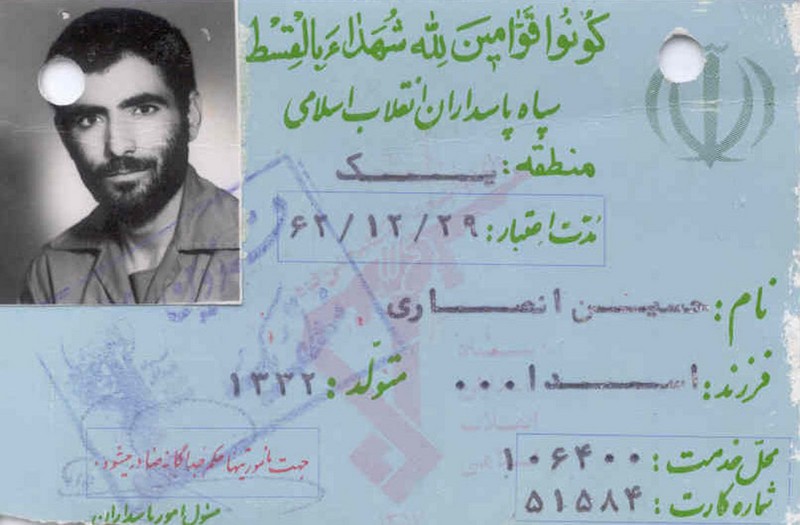 كُونُوا قَوَّامِينَ لِلّهِ شُهَدَاءَ بِالْقِسْطِ
سپاه پاسداران انقلاب اسلامی
منطقه: یک
مدّت اعتبار: ۶۲/۱۲/۲۹
نام: حسین انصاری
فرزند: اسدا...
متولّد: ۱۳۳۲
محل خدمت: ۱۰۶۴۰۰
شماره کارت: ۵۱۵۸۴
جهت مأموریتها حکم جداگانه صادر میشود.
مسئول امور پاسداران